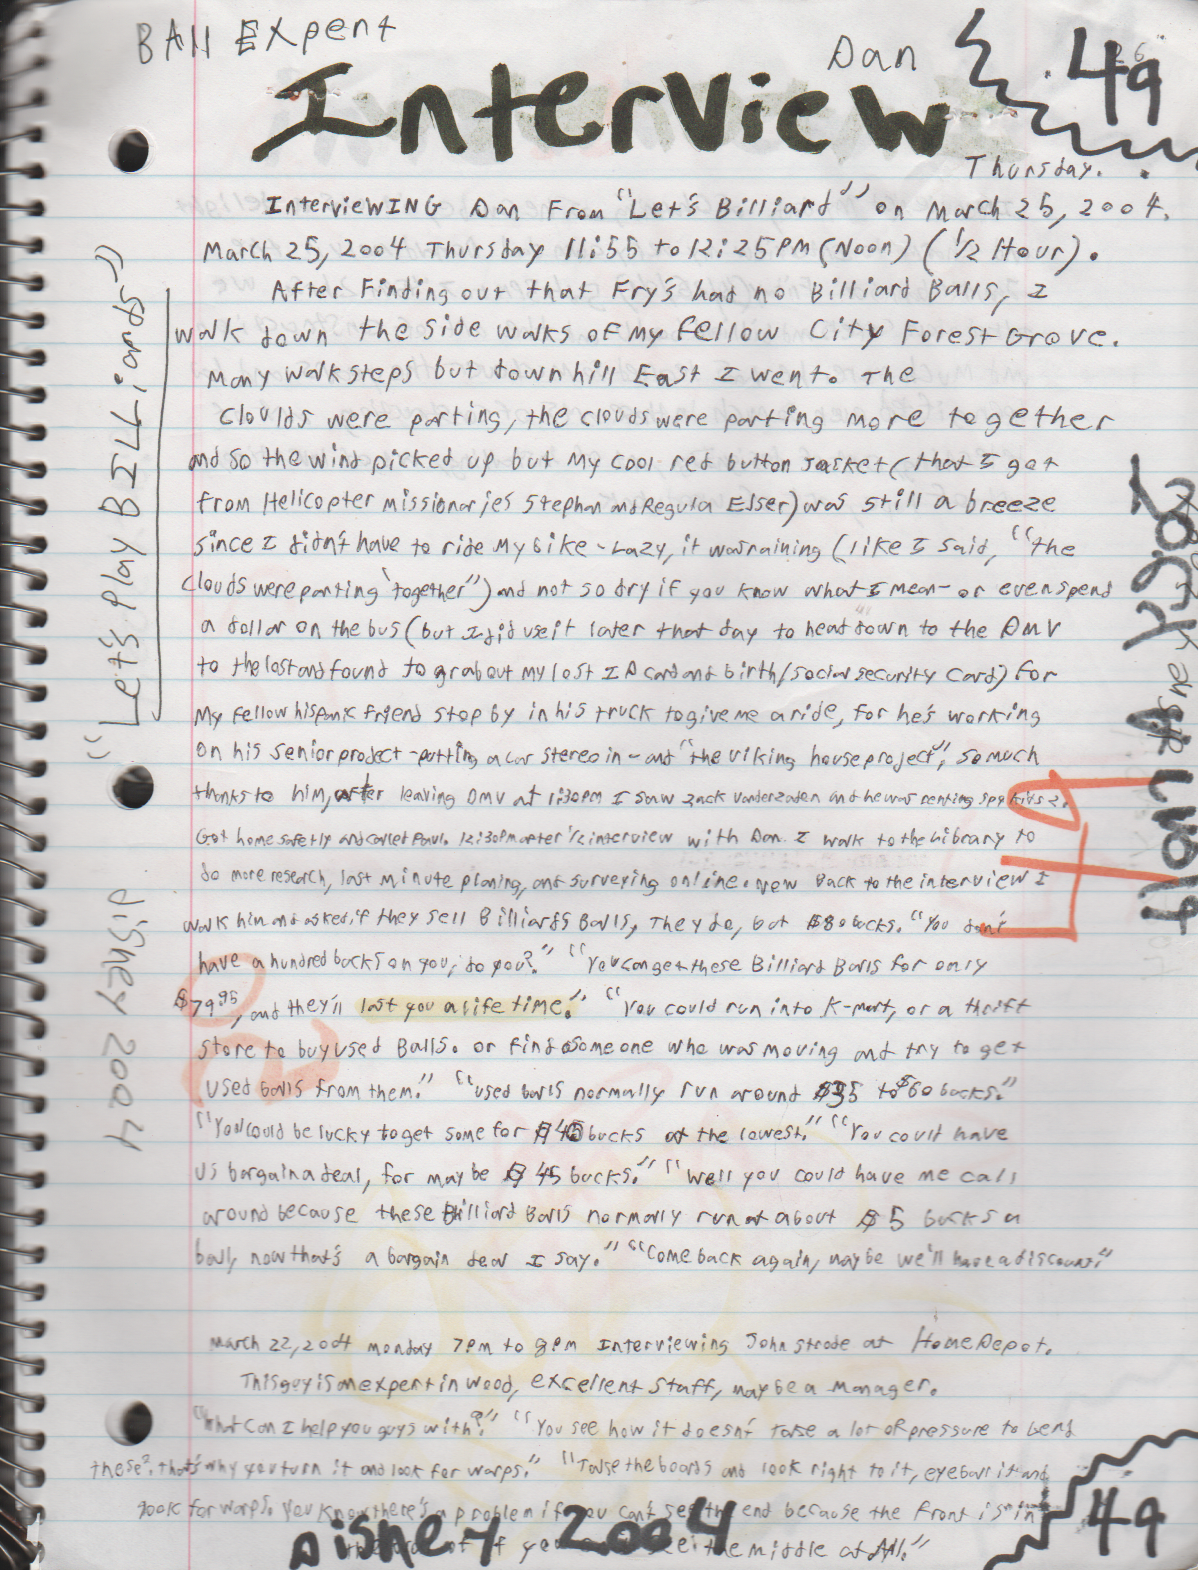 Ball Expert
Dan
Interview
49
Thursday.
Interviewing Dan From "Let's Billiard" on March 25, 2004.
March 25, 2004 Thursday 11:55 to 12:25PM (Noon) (1/2 Hour).
After Finding out that Fry's had no Billiard Balls, I
walk down the side walks of my fellow City Forest Grove.
Many walk steps but down hill East I went. The
Cloulds were parting, the clouds were parting more together
and so the wind picked up but my cool red button Jacket (that I get
from Helicopter missionaries Stephan and Regula Elser) was still a breeze
since I didn't have to ride my bike-Lazy, it was raining (like I said, "the
clouds were parting 'together") and not so dry if you know what I mean- or even spend
a dollar on the bus (but I did use it later that day to head down to the DMV
to the lost and found to grab out my lost ID card and birth/social security Card) for
my fellow hispanic friend stop by in his truck to give me a ride, for he's working
on his senior project -putting a car stereo in- and "the viking house project", so much
thanks to him, after leaving DMV at 1:30pm I saw Zack Vanderzaden and he was renting spy kids 2.
Got home safetly and called Paul. 12:30pm after 1/2 interview with Dan. I walk to the Library to
do more research, last minute planing, and surveying online. New Back to the interview I
walk him and asked, if they sell Billiards Balls, They do, but $80 bucks. "You don't
have a hundred bucks on you, do you?" "You can get these Billiard Balls for only
$79.95, and they'll last you a life time." "You could run into K-mart, or a thrift
store to buy used Balls. or find someone who was moving and try to get
used balls from them." "used balls normally run around $35 to $60 bucks."
"You could be lucky to get some for $40 bucks at the lowest." "You could have
us bargain a deal, for maybe $45 bucks." "Well you could have me call
around because these Billiard Balls normally run at about $5 bucks a
ball, now that's a bargain deal I say." "Come back again, maybe we'll have a discount."
March 22, 2004 monday 7pm to 8pm Interviewing John Strode at Home Depot.
This guy is an expert in wood, excellent staff, maybe a manager.
"What Can I help you guys with?" "You see how it doesn't take a lot of pressure to bend
these?. that's why you turn it and look for warps." "Take the boards and look right to it, eyeball it and
look for warps. You know there's a problem if you can't see the end because the front is in
of if you see the middle at All."
Dishey 2004
49
"Let's Play BILLiards"
Dishey 2004
49